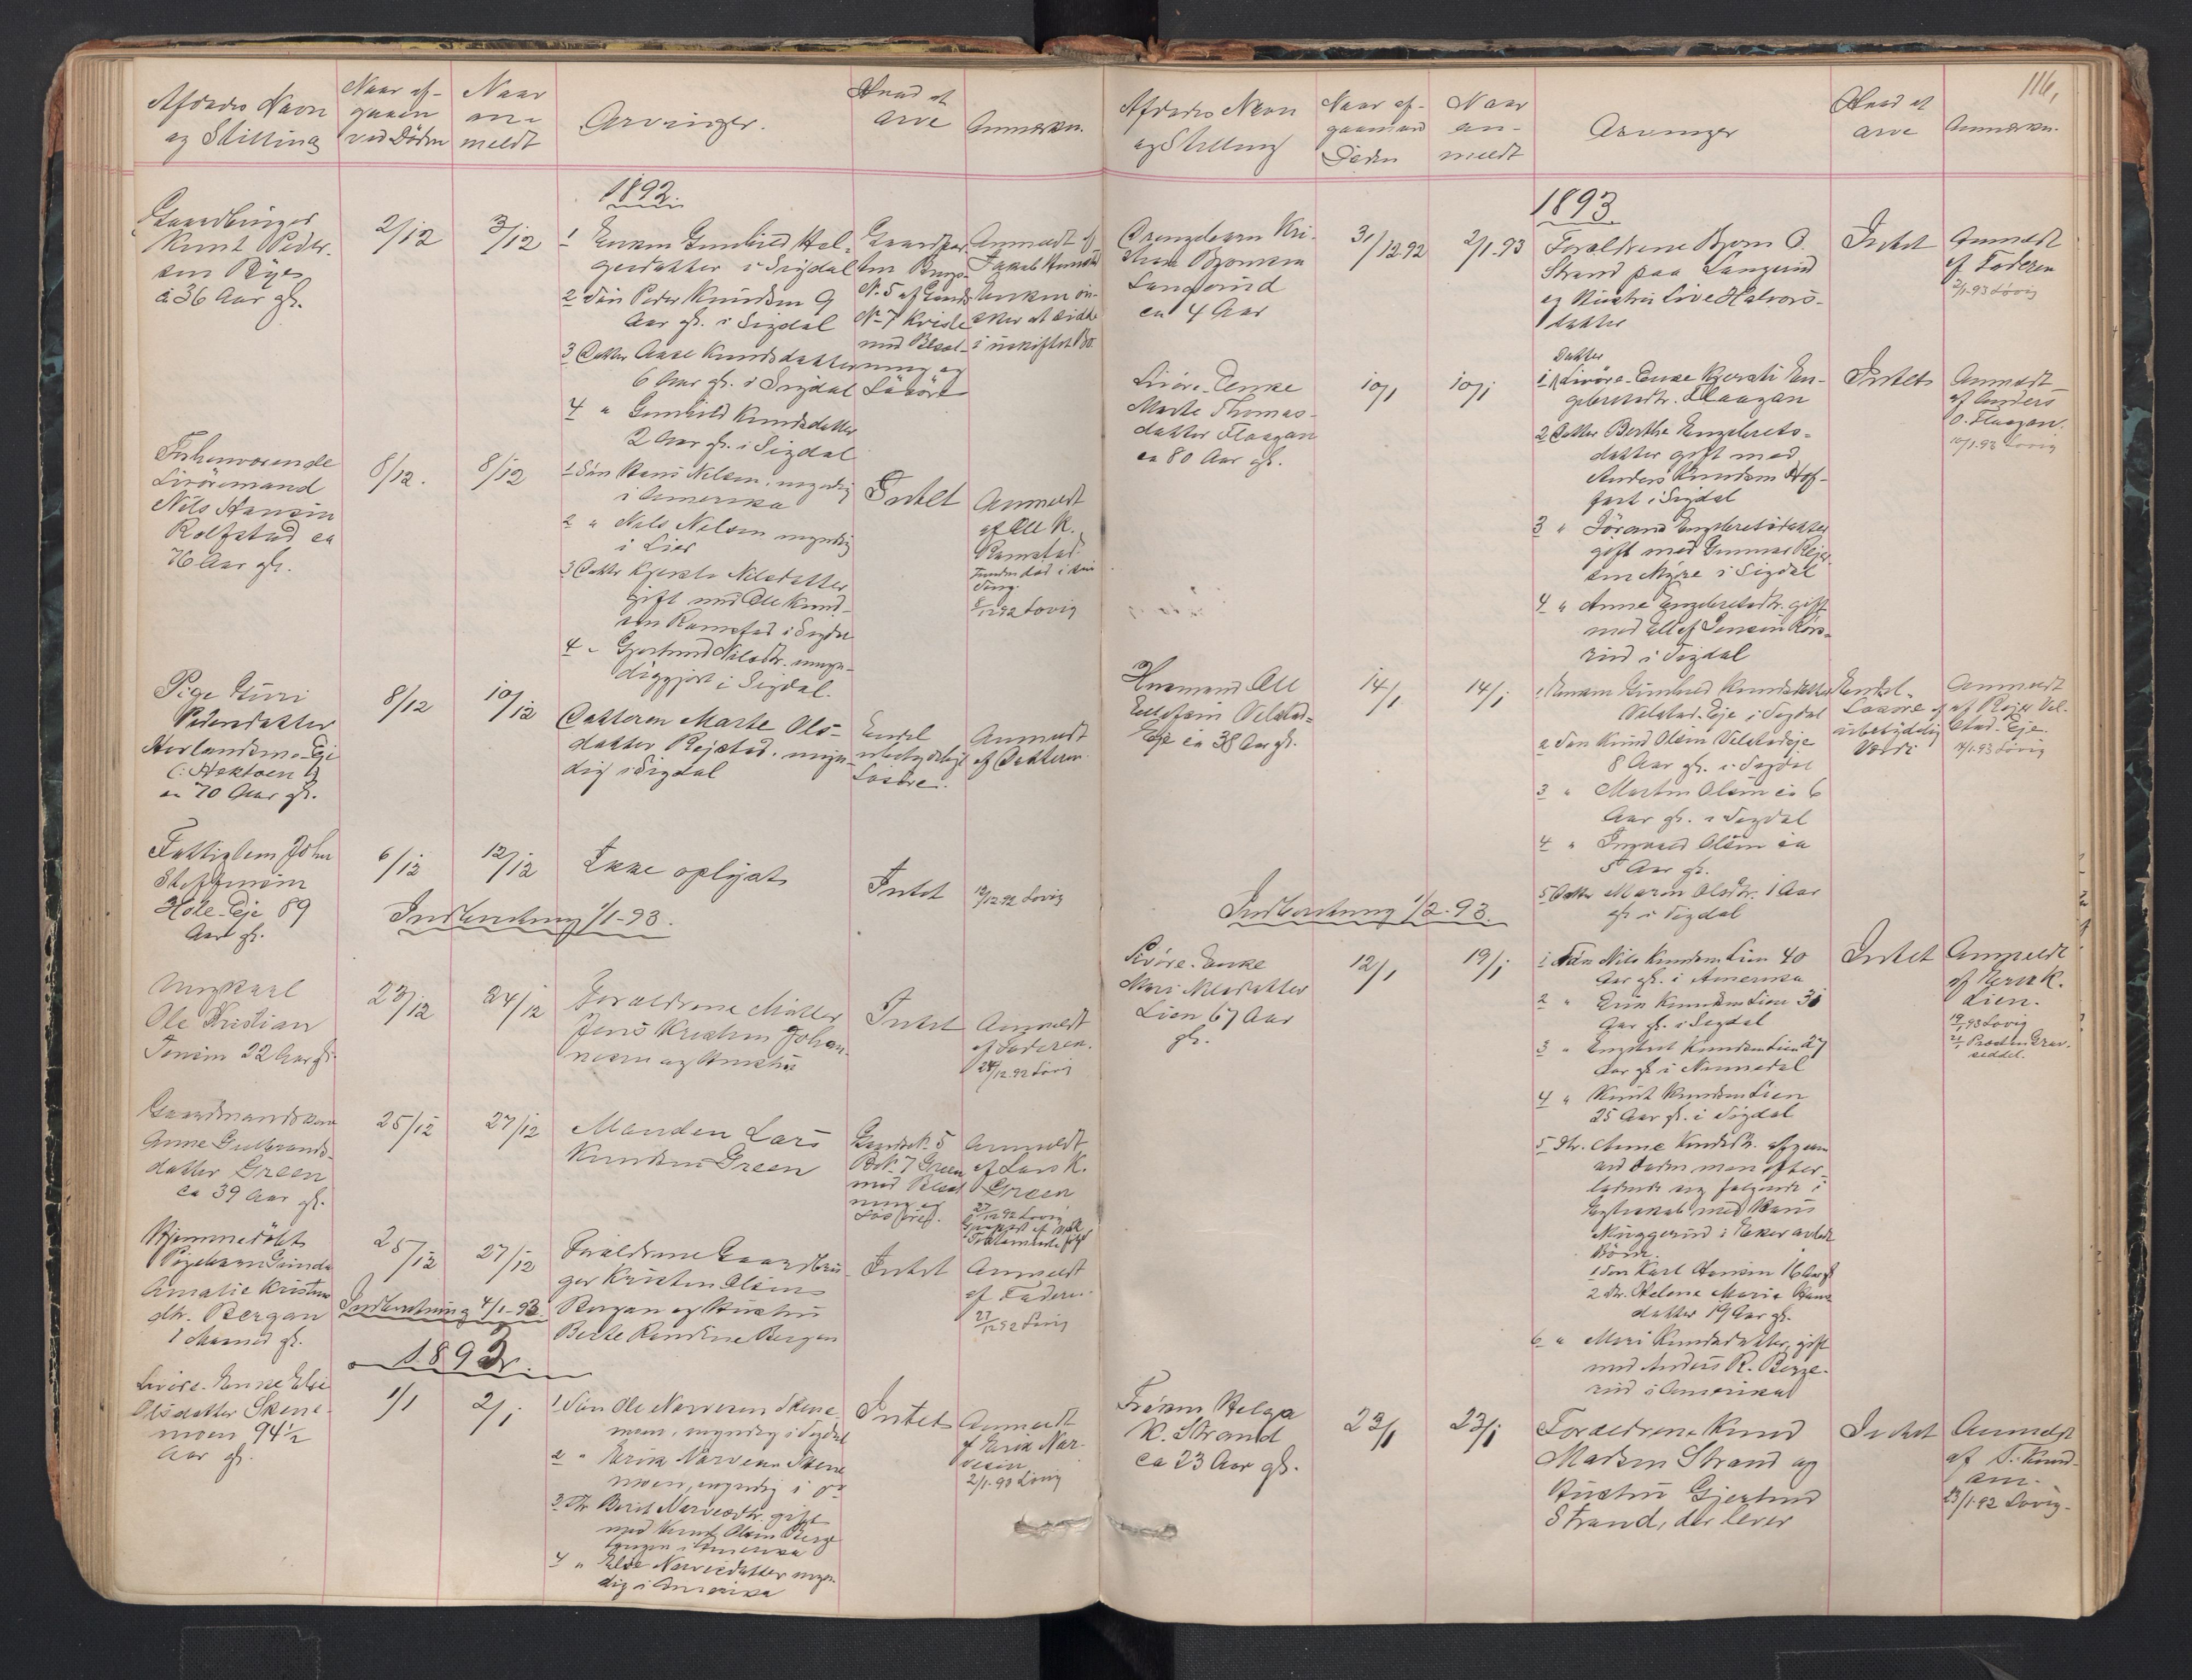 Afdødes Navn
og Stilling
Naar af-
gaaen
ved Døden
Naar
an-
meldt
Arvinger.
Hvad at
arve
Anmærkn.
1892.
Gaardbruger
Knut Peder-
sen Bye
a 36 Aar gl.
2/12
3/12
1 Enken Gunhild Hel-
gesdatter i Sigdal
2 Søn Peder Knudsen 9
Aar gl. i Sigdal
3 Datter Aase Knudsdatter
6 Aar gl. i Sigdal
4 " Gunhild Knudsdatter
2 Aar gl. i Sigdal
Gaardpar-
ten Brugs-
N. 5 af Gaards
N. 7
med Besæt-
ning og
Løsøre
Anmeldt af
Jakob
Enken øn-
sker at sidde
i uskiftet Bo.
Forhenværende
Livøremand
Nils Hansen
Rolfstad ca
76 Aar gl.
8/12.
8/12
1 Søn Hans Nilsen, myndig
i Amerika
2 " Nils Nilsen myndig
i Lier
3 Datter Kjersti Nilsdatter
gift med Ole Knud-
sen Ramstad i Sigdal
4 " Gjertrud Nilsdtr. umyn-
diggjort i Sigdal.
Intet
Anmeldt
af Ole K.
Ramstad.
Funden død i sin
Seng.
8/12 92 Lovig
Pige Guri
Pedersdatter
Eje
(: Haktoen :)
ca 70 Aar gl.
8/12
10/12
Datteren Marte Ols-
datter Rejstad. myn-
dig i Sigdal
Endel
ubetydeligt
Løsøre.
Anmeldt
af Datteren
Fattiglem John
Steffensen
Hole-Eje 89
Aar gl.
6/12
12/12
Ikke oplyst
Intet
12/12 92 Lovig
Indberetning 1/1-93.
Ungkarl
Ole Kristian
Jensen 22 Aar gl.
23/12
24/12
Forældrene Møller
Jens Kristian Johan-
nesen og Hustru
Intet
Anmeldt
af Faderen.
24/12.92 Lovig
Gaardmandskone
Anne Gulbrands-
datter Green
ca 39 Aar gl.
25/12
27/12
Manden Lars
Knudsen Green
Gaards N. 5
B.N. 7 Green
med Besæt
ning og
Løsøre.
Anmeldt
af Lars K.
Green
27/12 92 Lovig
Hjemmedøbt
Pigebarn Gunda
Amalie Kristians
dtr. Bergan
1 Maaned gl.
25/12
27/12
Forældrene Gaardbru-
ger Kristen Olsen
Bergan og Hustru
Berte Bergan
Intet
Anmeldt
af Faderen.
27/12 92 Lovig
Indberetning 4/1-93.
1893.
Livøre-Enke Else
Olsdatter Skene-
moen 94 1/2
Aar gl.
1/1
2/1
1 Søn Ole Narvesen Skene-
moen, myndig i Sigdal
2 " Erik Narvesen Skene
moen, myndig i do
3 Dtr. Berit Narvesdtr. gift
med Knut Olsen
i Amerika
4 " Else Narvesdatter myn-
dig i Amerika
Intet
Anmeldt
af Erik Nar-
vesen
2/1-93 Lovig
116,
Afdødes Navn
og Stilling
Naar af-
gaaen ved
Døden
Naar
an-
meldt
Arvinger
Hvad at
arve
Anmærkn.
1893.
Drengebarn Kri-
stian Bjørnsen
Langerud
ca 4 Aar
31/12 92
2/1-93
Forældrene Bjørn O.
Strand paa Langerud
og Hustru Live Halvors-
datter
Intet
Anmeldt
af Faderen
2/1-93 Lovig
Livøre-Enke
Marte Thomas-
datter Flaagan
ca 80 Aar gl.
10/1
10/1
Datter
1 Livøre-Enke Kjersti En-
gebretsdtr. Flaagan
2 Datter Berthe Engebrets-
datter gift med
Anders Knudsen Hof-
gart i Sigdal
3 " Jørand Engebretsdatter
gift med Gunnar Rejer
sen Myre i Sigdal
4 " Anne Engebretsdtr. gift
med Ellef Jensen
rud i Sigdal
Intet
Anmeldt
af Anders
O. Flaagan.
10/1.93 Lovig
Husmand Ole
Ellefsen Velstad-
Eje ca 38 Aar gl.
14/1
14/1
1 Enken Gunhild Knudsdatter
Velstad-Eje i Sigdal
2 Søn Knud Olsen Velstadeje
8 Aar gl. i Sigdal
3 " Martin Olsen ca 6
Aar gl. i Sigdal
4 " Ingvald Olsen ca
5 Aar gl.
5 Datter Maren Olsdtr. 1 Aar
gl. i Sigdal
Endel
Løsøre af
ubetydelig
Værdi
Anmeldt
af Rejer Vel-
stad-Eje.
14/1.93 Lovig
Indberetning 1/2-93.
Livøre-Enke
Mari Nilsdatter
Lien 67 Aar
gl.
12/1
19/1
1 Søn Nils Knudsen Lien 40
Aar gl. i Amerika
2 " Erik Knudsen Lien 31
Aar gl. i Sigdal
3 " Engebret Knudsen Lien 27
Aar gl. i Nummedal
4 " Knut Knudsen Lien
25 Aar gl. i Sigdal
5 Dtr. Anne Knudsdtr. afgaaen
ved Døden, men efter-
ladende sig følgende i
Egteskab med Hans
Muggerud i Eker avlede
Børn.
1 Søn Karl Hansen 16 Aar gl
2 Dtr. Helene Marie Hans
datter 19 Aar gl.
6 " Mari Knudsdatter, gift
med Anders R. Berge-
rud i Amerika
Intet
Anmeldt
af Erik K.
Lien.
19/1 93 Lovig
21/1 Præsten Grav-
seddel.
Frøken Helga
K. Strand
ca 23 Aar gl.
23/1
23/1
Forældrene Knud
Madsen Strand og
Hustru Gjertrud
Strand, der lever
Intet
Anmeldt
af T. Knud-
sen.
23/1-92 Lovig-